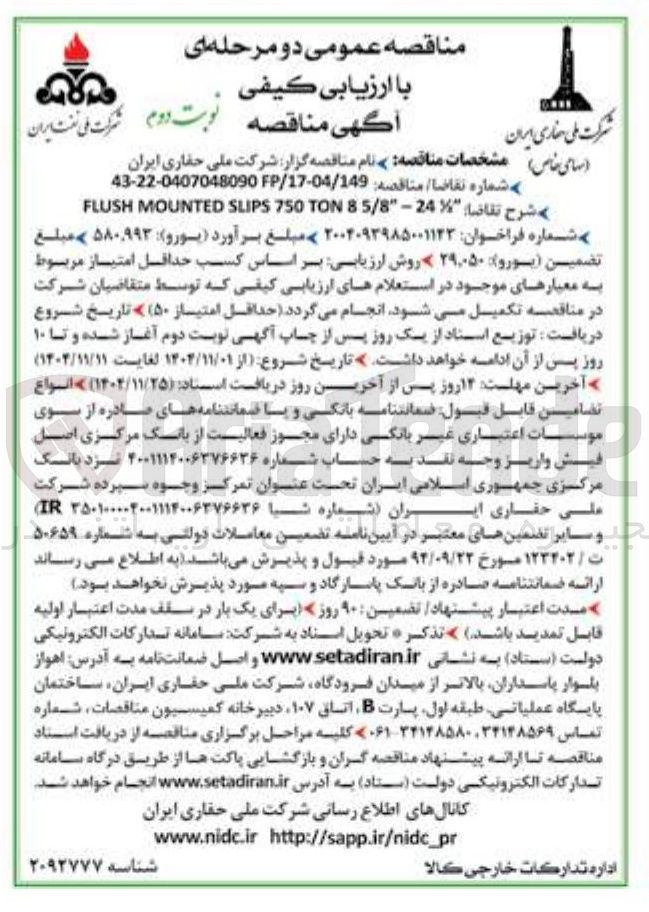 مناقصه عمومی دو مرحله‌ای
با ارزیابی کیفی
آگهی مناقصه
نوبت دوم
شرکت ملی نفت ایران
شرکت ملی حفاری ایران
(سهامی خاص)
مشخصات مناقصه: نام مناقصه‌گزار: شرکت ملی حفاری ایران
شماره تقاضا/ مناقصه: 43-22-0407048090 FP/17-04/149
شرح تقاضا: FLUSH MOUNTED SLIPS 750 TON 8 5/8” – 24 ½”
شماره فراخوان: ۲۰۰۴۰۹۳۹۸۵۰۰۱۱۴۳ مبلغ برآورد (یورو): ۵۸۰,۹۹۳ مبلغ
تضمین (یورو): ۲۹,۰۵۰ روش ارزیابی: بر اساس کسب حداقل امتیاز مربوط
به معیارهای موجود در استعلام های ارزیابی کیفی که توسط متقاضیان شرکت
در مناقصه تکمیل می شود، انجام می‌گردد.(حداقل امتیاز ۵۰) تاریخ شروع
دریافت : توزیع اسناد از یک روز پس از چاپ آگهی نوبت دوم آغاز شده و تا ۱۰
روز پس از آن ادامه خواهد داشت. تاریخ شروع: (از ۱۴۰۴/۱۱/۰۱ لغایت ۱۴۰۴/۱۱/۱۱)
آخرین مهلت: ۱۴روز پس از آخرین روز دریافت اسناد: (۱۴۰۴/۱۱/۲۵) انواع
تضامین قابل قبول: ضمانتنامه بانکی و یا ضمانتنامه‌های صادره از سوی
موسسات اعتباری غیر بانکی دارای مجوز فعالیت از بانک مرکزی اصل
فیش واریز وجه نقد به حساب شماره ۴۰۰۱۱۱۴۰۰۶۳۷۶۶۳۶ نزد بانک
مرکزی جمهوری اسلامی ایران تحت عنوان تمرکز وجوه سپرده شرکت
ملی حفاری ایران (شماره شبا IR ۳۵۰۱۰۰۰۰۴۰۰۱۱۱۴۰۰۶۳۷۶۶۳۶)
و سایر تضمین‌های معتبر در آیین‌نامه تضمین معاملات دولتی به شماره ۵۰۶۵۹
ت / ۱۲۳۴۰۲ مورخ ۹۴/۰۹/۲۲ مورد قبول و پذیرش می‌باشد.(به اطلاع می رساند
ارائه ضمانتنامه صادره از بانک پاسارگاد و سپه مورد پذیرش نخواهد بود.)
مدت اعتبار پیشنهاد/ تضمین : ۹۰ روز (برای یک بار در سقف مدت اعتبار اولیه
قابل تمدید باشد.) تذکر * تحویل اسناد به شرکت: سامانه تدارکات الکترونیکی
دولت (ستاد) به نشانی www.setadiran.ir و اصل ضمانت‌نامه به آدرس: اهواز
بلوار پاسداران، بالاتر از میدان فرودگاه، شرکت ملی حفاری ایران، ساختمان
پایگاه عملیاتی، طبقه اول، پارت B، اتاق ۱۰۷، دبیرخانه کمیسیون مناقصات، شماره
تماس ۳۴۱۴۸۵۶۹، ۳۴۱۴۸۵۸۰-۰۶۱ کلیه مراحل برگزاری مناقصه از دریافت اسناد
مناقصه تا ارائه پیشنهاد مناقصه گران و بازگشایی پاکت ها از طریق درگاه سامانه
تدارکات الکترونیکی دولت (ستاد) به آدرس www.setadiran.ir انجام خواهد شد.
کانال‌های اطلاع رسانی شرکت ملی حفاری ایران
www.nidc.ir http://sapp.ir/nidc_pr
اداره تدارکات خارجی کالا
شناسه ۲۰۹۲۷۷۷